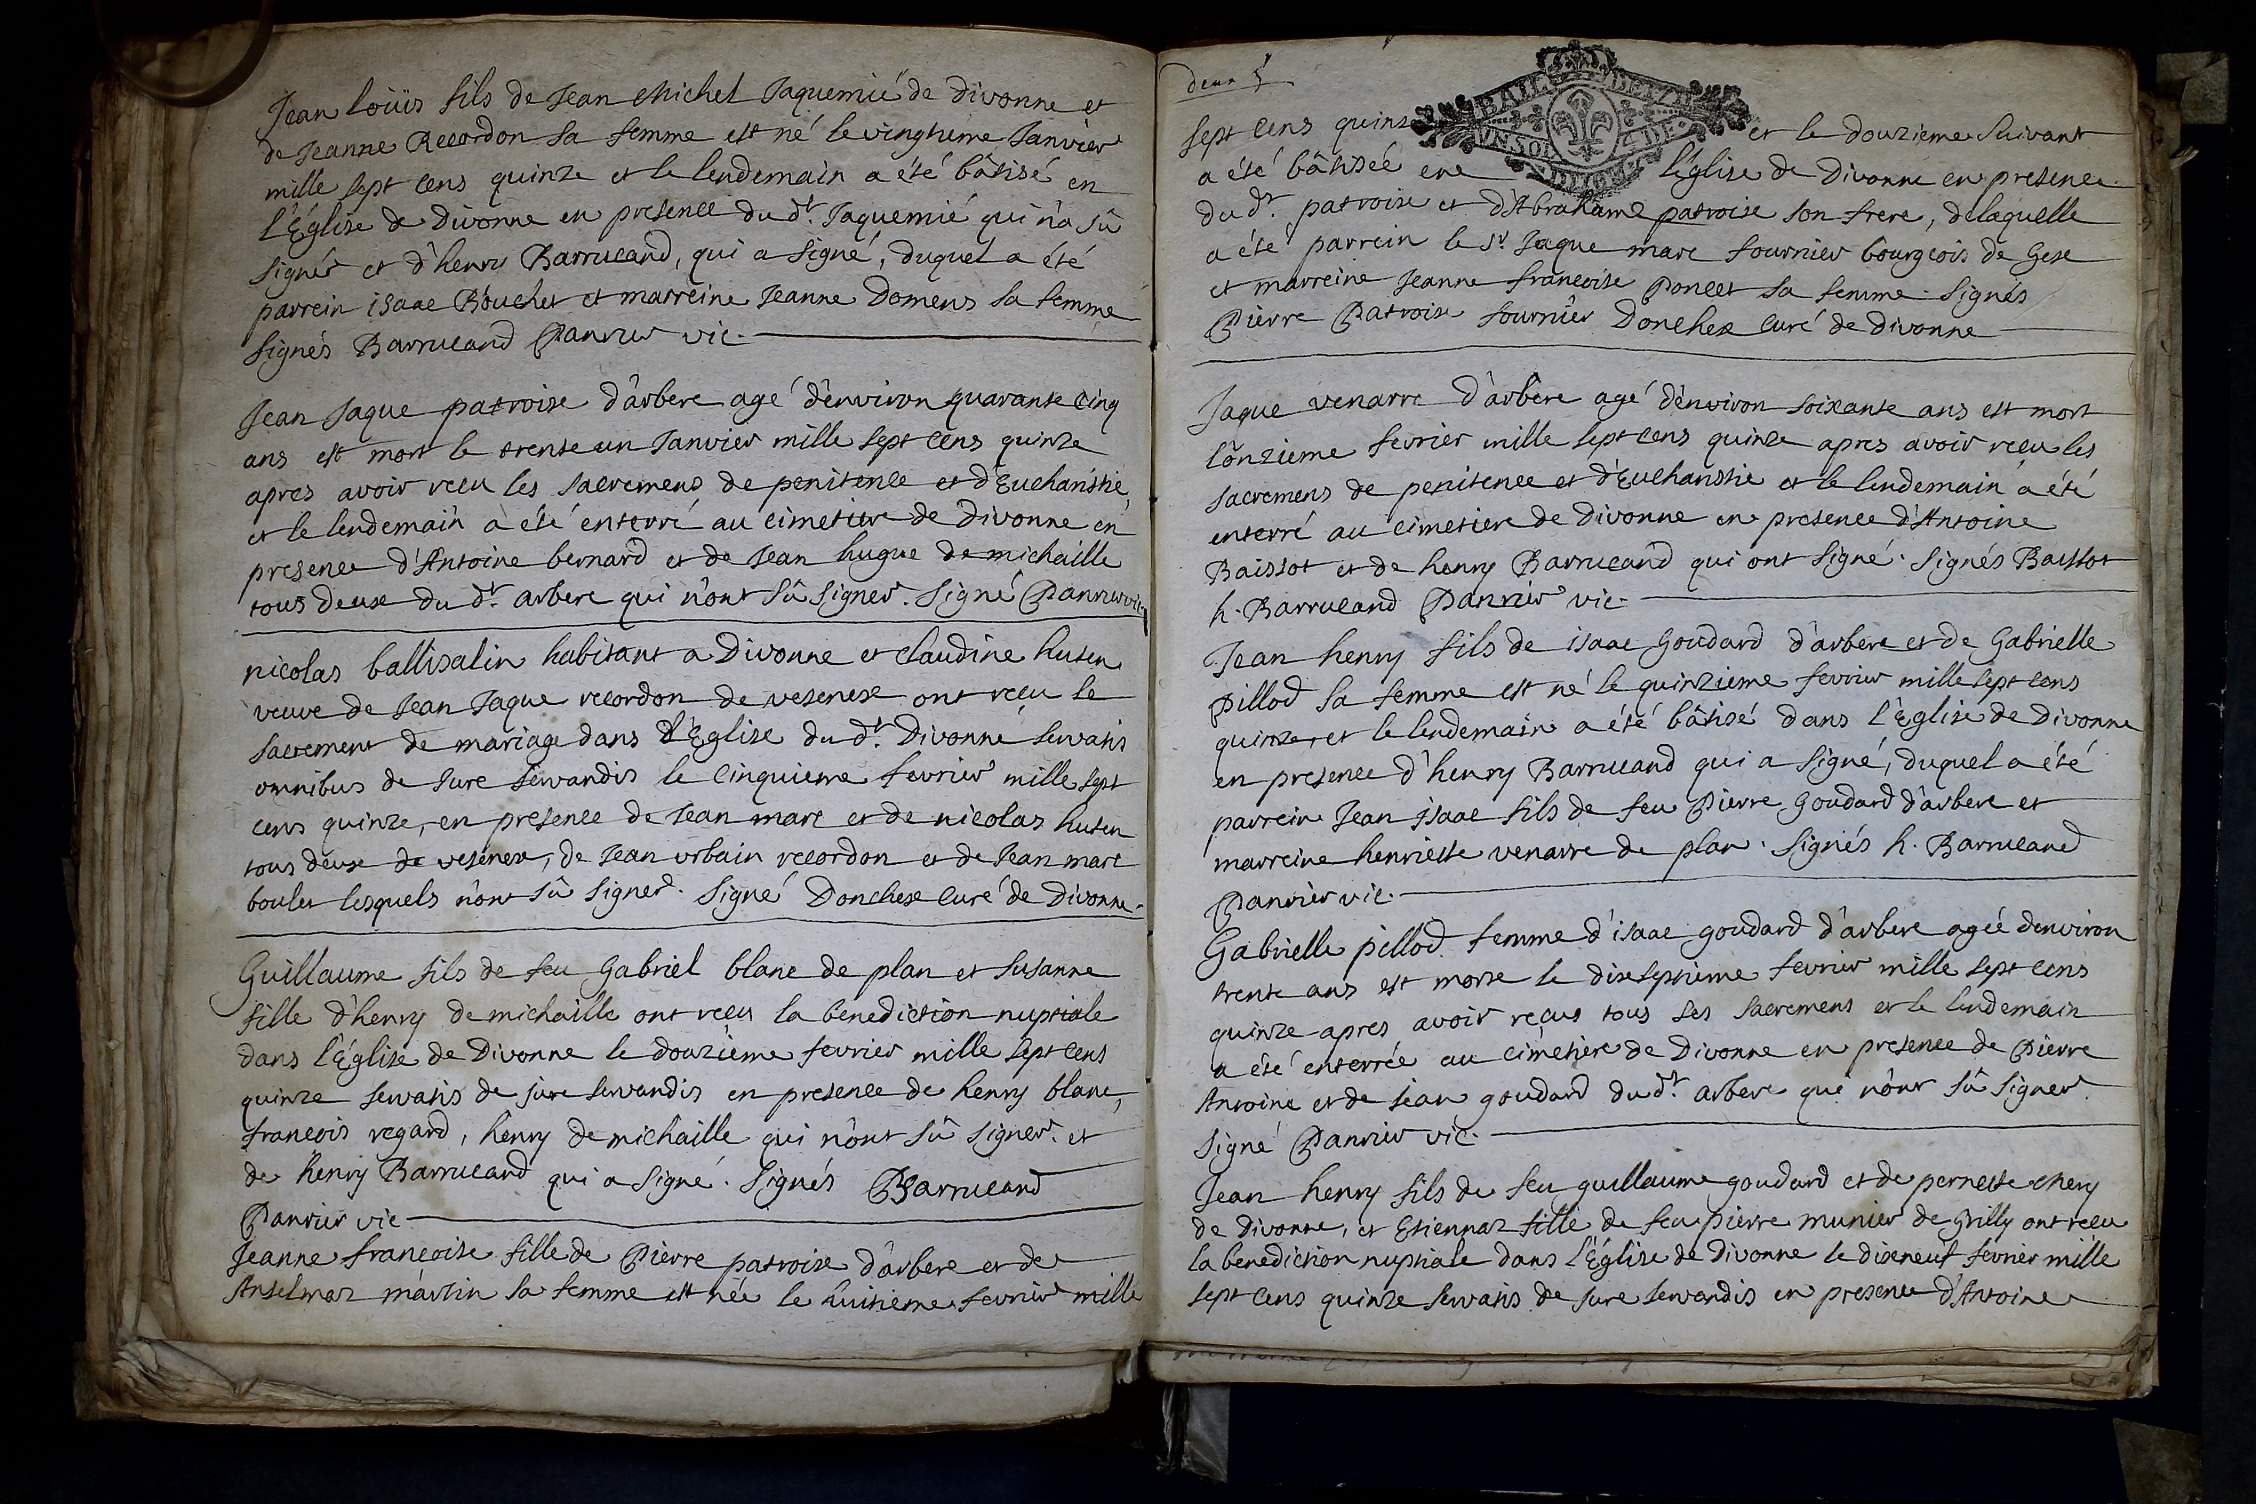 Jean loüis fils de Jean Michel Jaquemié de Divonne et
de Jeanne Recordon sa femme est né le vingtieme Janvier
mille sept cens quinze et le lendemain a été bâtisé en
l'Église de Divonne en presence du dt. Jaquemié qui n'a sû
signer et d'henry Barrucand, qui a signé, duquel a été
parrein isaac Bouchet et marreine Jeanne Domens sa femme
signés Barrucand Panrier vic.
Jean Jaque patroise d'arbere agé d'environ quarante cinq
ans est mort le trente un Janvier mille sept cens quinze
apres avoir recu les sacremens de penitence et d'Eucharistie,
et le lendemain a été enterré au cimetiere de Divonne en
presence d'Antoine bernard et de Jean hugue de michaille
tous deux du dt. arbere qui n'ont sû signer. Signé Panrier vic.
nicolas ballisalin habitant a Divonne et claudine huten
veuve de Jean Jaque recordon de vesenex ont recu le
sacrement de mariage dans l'Eglise du dt. Divonne servatis
omnibus de Jure servandis le cinquieme fevrier mille sept
cens quinze, en presence de Jean marc et de nicolas huten
tous deux de vesenex, de Jean urbain recordon et de Jean marc
boulet lesquels n'ont sû signer. Signé Donchex curé de Divonne.
Guillaume fils de feu Gabriel blanc de plan et Susanne
fille d'henry de michaille ont recu la benediction nuptiale
dans l'Église de Divonne le douzieme fevrier mille sept cens
quinze servatis de jure servandis en presence de henry blanc,
francois regard, henry de michaille qui n'ont sû signer. et
de henry Barrucand qui a signé. Signés Barrucand
Panrier vic.
Jeanne francoise fille de Pierre patroise d'arbere et de
Anselmaz martin sa femme est née le huitieme fevrier mille
deux
sept cens quinz et le douzieme suivant
a été bâtiseé en l'église de Divonne en presence
du dt. patroise et d'Abraham patroise son frere, de laquelle
a été parrein le sr. Jaque marc fournier bourgeois de Gex
et marreine Jeanne francoise Poncet sa femme. Signés
Pierre Patroise fournier Donchex curé de Divonne
Jaque venarre d'arbere agé d'environ soixante ans est mort
l'onzieme fevrier mille sept cens quinze apres avoir recu les
sacremens de penitence et d'Eucharistie et le lendemain a été
enterré au cimetiere de Divonne en presence d'Antoine
Baissot et de henry Barrucand qui ont signé. Signés Baissot
h. Barrucand Panrier vic.
Jean henry fils de isaac Goudard d'arbere et de Gabrielle
Pillod sa femme est né le quinzieme fevrier mille sept cens
quinze, et le lendemain a été bâtisé dans l'Eglise de Divonne
en presence d'henry Barrucand qui a signé, duquel a été
parrein Jean isaac fils de feu Pierre Goudard d'arbere et
marreine henriette venarre de plan. Signés h. Barrucand
Panrier vic.
Gabrielle pillod femme d'isaac goudard d'arbere agéé denviron
trente ans est morte le dixseptieme fevrier mille sept cens
quinze apres avoir reçus tous ses sacremens et le lendemain
a été enterrée au cimetiere de Divonne en presence de Pierre
Antoine et de jean goudard du dt. arbere que n'ont sû signer.
Signé Panrier vic.
Jean henry fils de feu guillaume goudard et de pernette chery
de Divonne, et Etiennaz fille de feu pierre munier de Grilly ont recu
la benediction nuptiale dans l'Église de Divonne le dixneuf fevrier mille
sept cens quinze servatis de jure servandis en presence d'Antoine